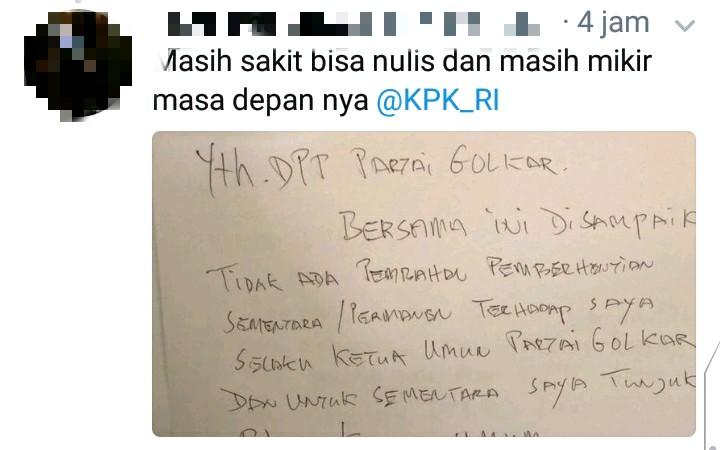 · 4 jam
Masih sakit bisa nulis dan masih mikir
masa depan nya @KPK_RI
Yth. DPP PARTAI GOLKAR.
BERSAMA iNi DiSAMPAiK
TiDAK ADA PEMBAHASAN PEMBERHENTIAN
SEMENTARA / PERMANEN TERHADAP SAYA
SELAKU KETUA UMUM PARTAI GOLKAR
DAN UNTUK SEMENTARA SAYA TUNJUK